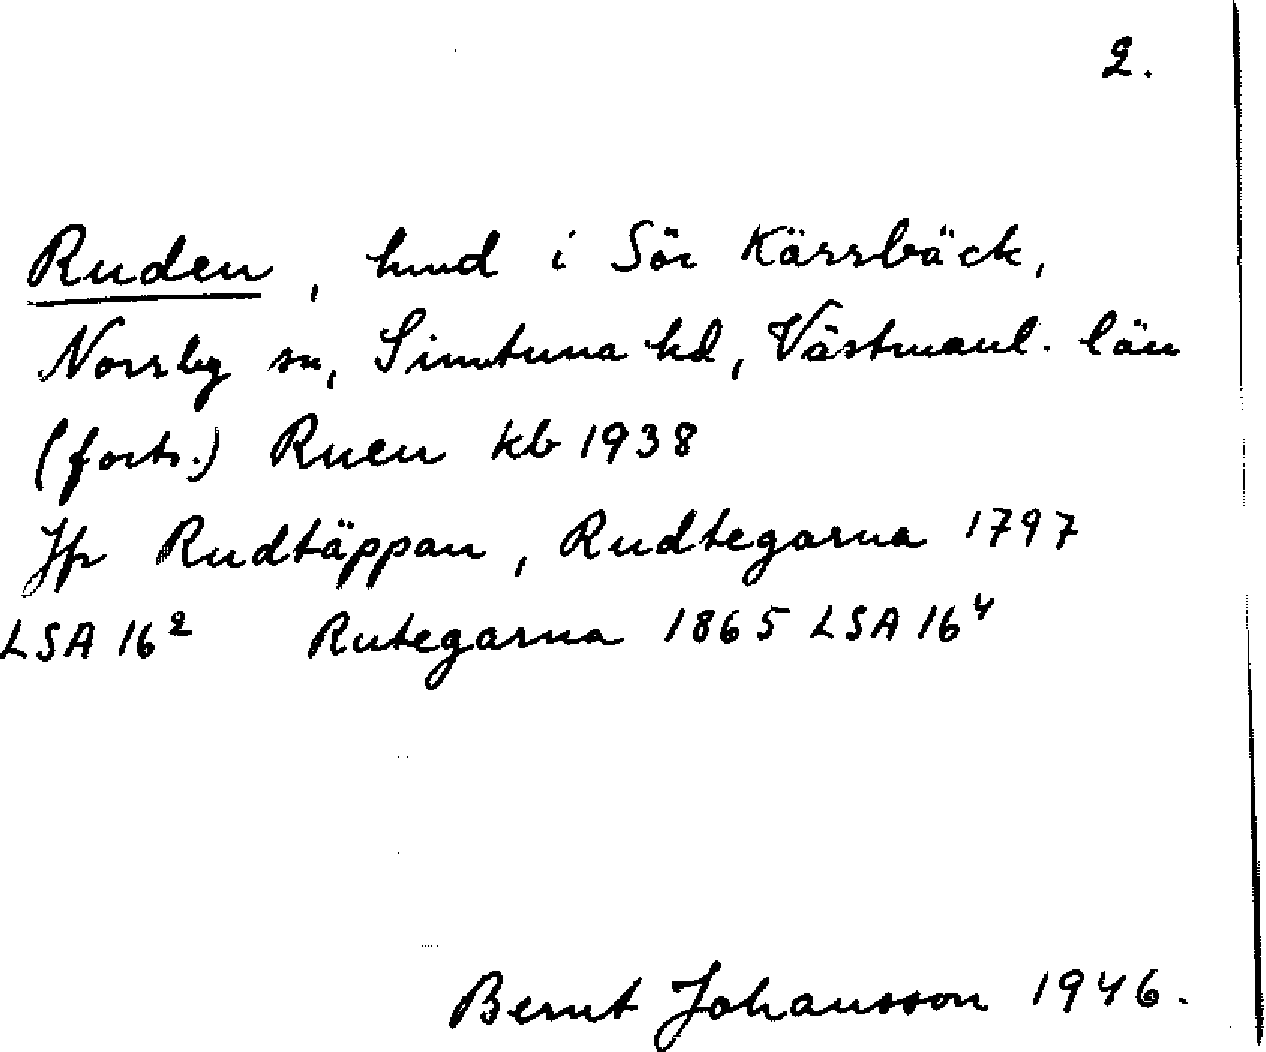 2.
Ruden, hmd i Sör Kärrbäck,
Norrby sn, Simtuna hd, Västmanl. län
(forts.) Ruen kb 1938
Jfr Rudtäppan, Rudtegarna 1797
LSA 16² Rutegarna 1865 LSA 16⁴
Bernt Johansson 1946.